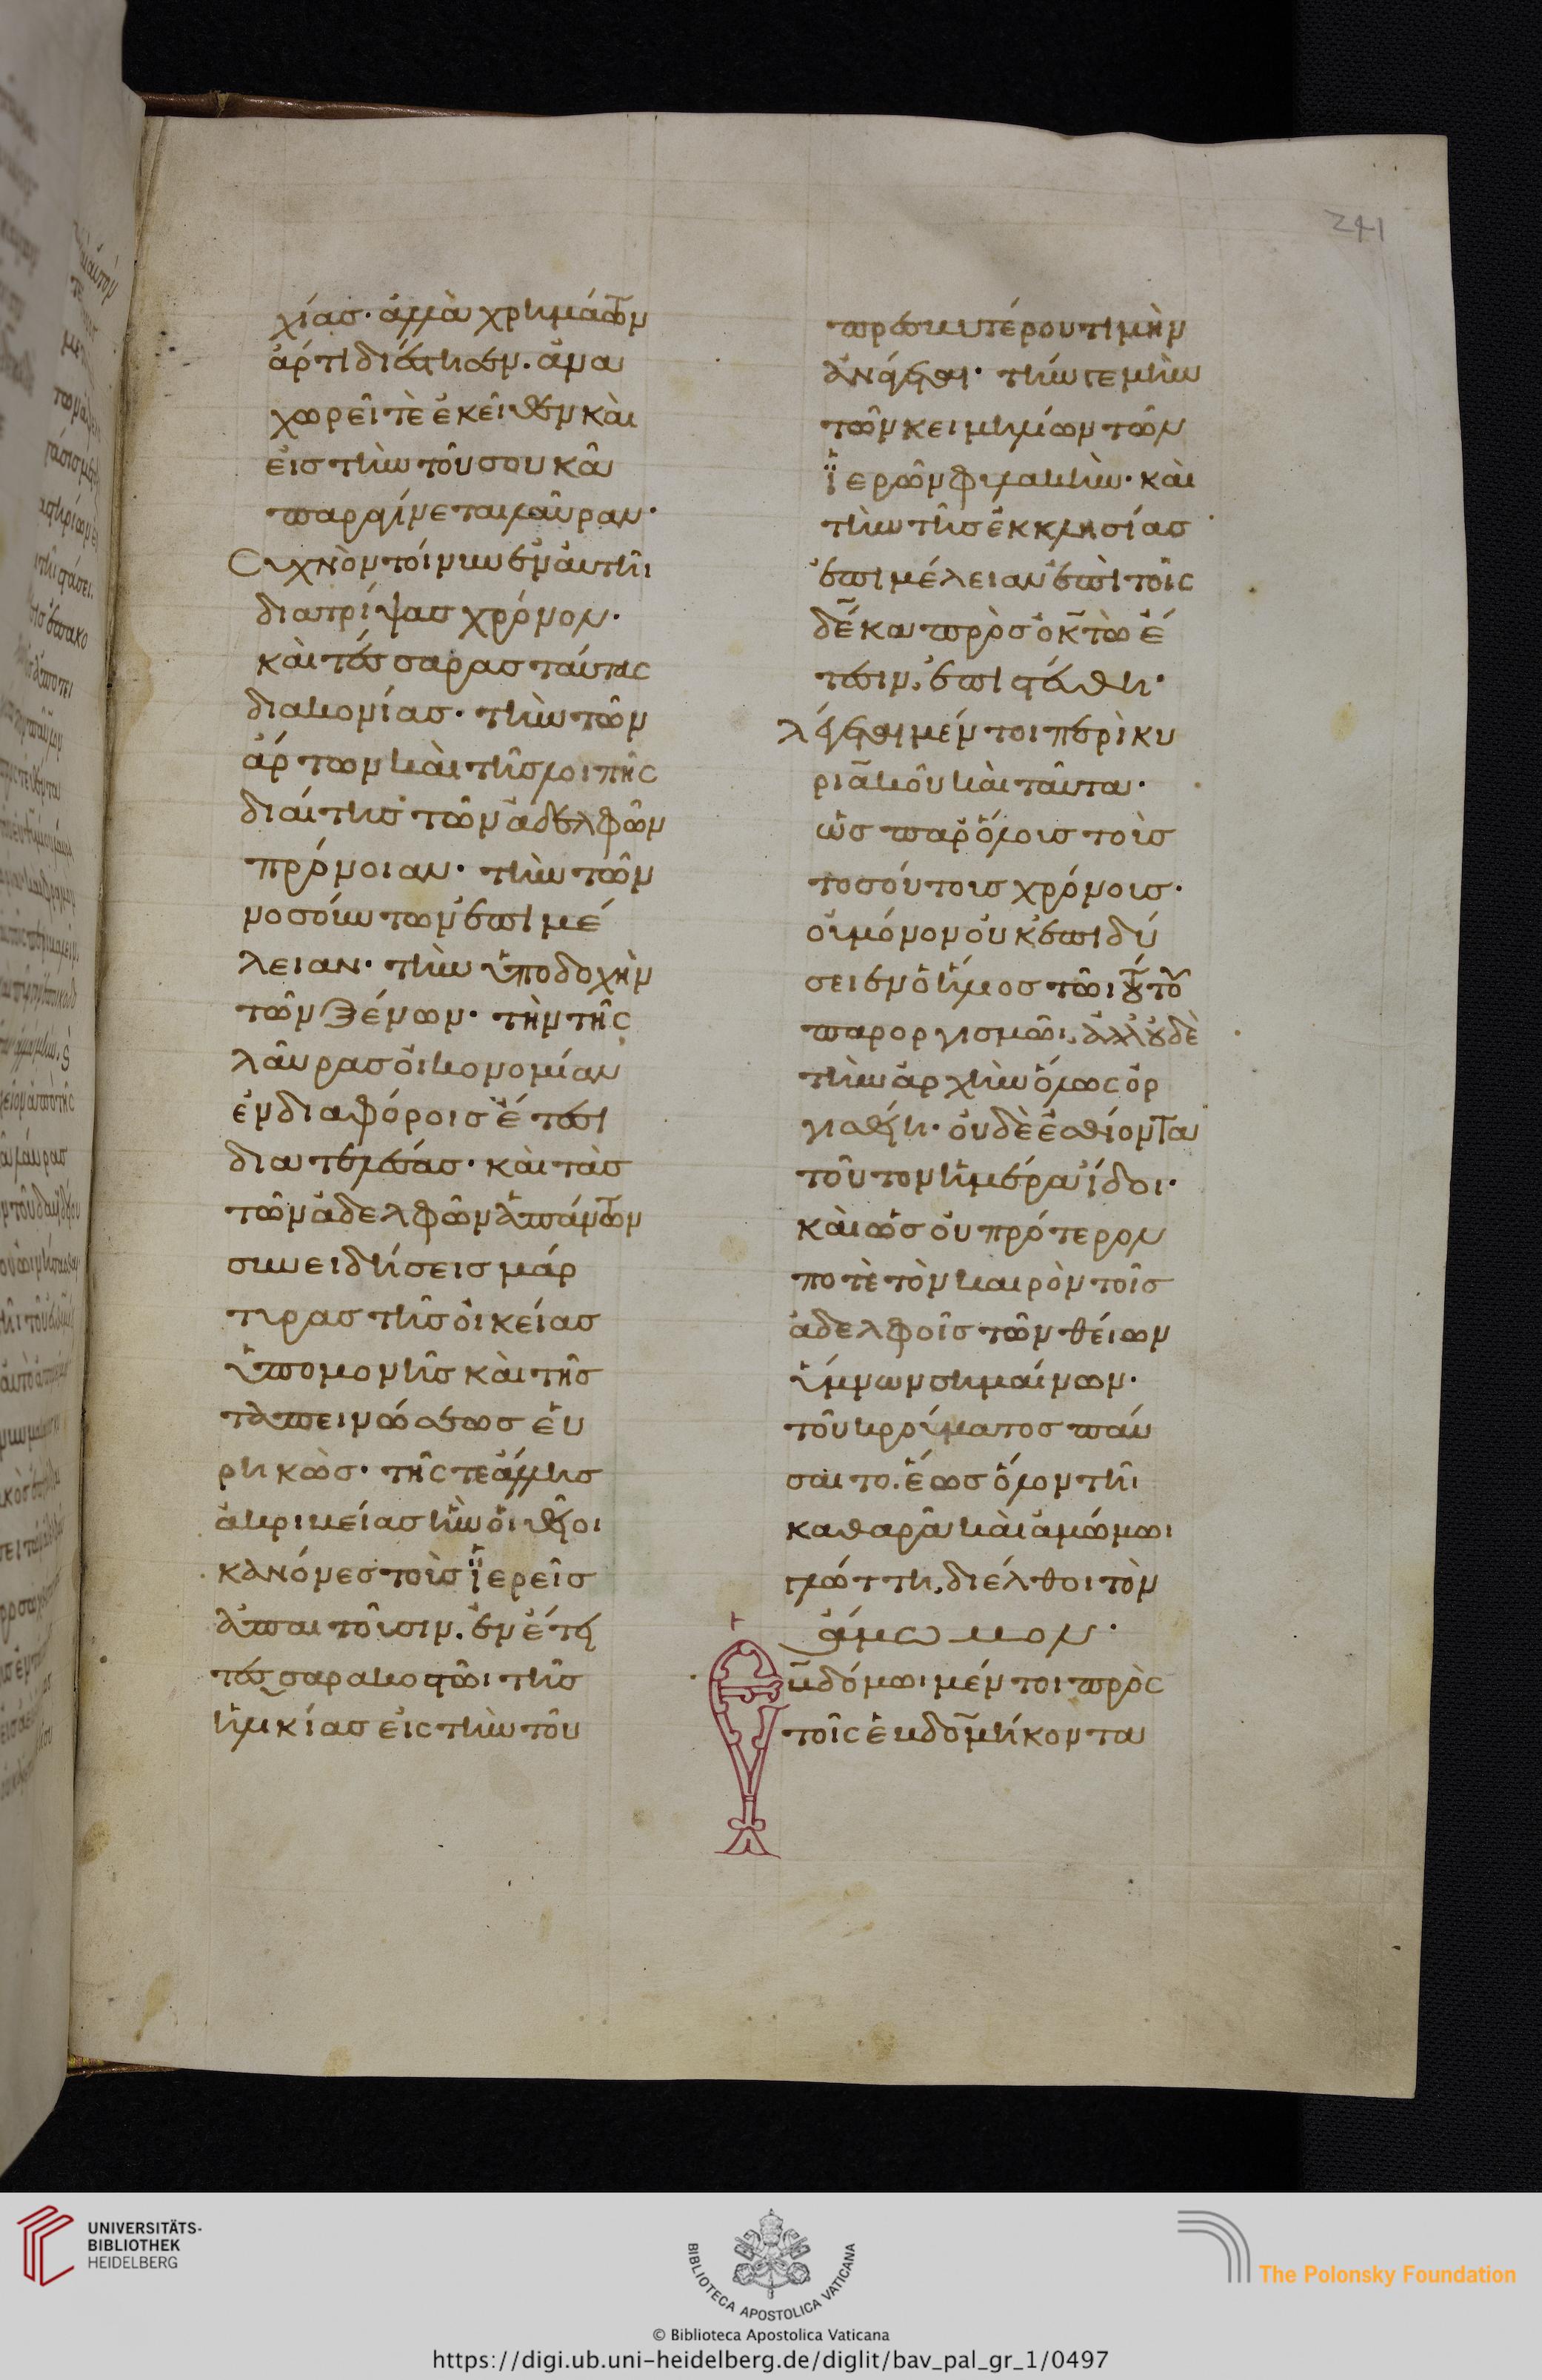 241
χίας· ἀλλὰ χρημάτων
ἀρτιδιάστησεν. ἅμα
χωρεῖ τὲ ἐκεῖθεν καὶ
εἰς τὴν τοῦ σουκᾶ
παραγίνεται λαῦραν·
Συχνὸν τοίνυν ἐν αὐτῆι
διατρίψας χρόνον·
καὶ τέσσαρας ταύτης
διακονίας· τὴν τῶν
ἄρτων καὶ τῆς λοιπῆς
διαίτης τῶν ἀδελφῶν
πρόνοιαν· τὴν τῶν
νοσούντων ἐπιμέ
λειαν· τὴν ὑποδοχὴν
τῶν ξένων· τὴν τῆς
λαύρας οἰκονομίαν
ἐν διαφόροις ἔτεσι
διατελέσας· καὶ τὰς
τῶν ἀδελφῶν ἁπάντων
συνειδήσεις μάρ
τυρας τῆς οἰκείας
ὑπομονῆς καὶ τῆς
ταπεινώσεως εὑ
ρηκώς· τῆς τε ἄλλης
ἀκριβείας ἣν οἱ θεῖοι
κανόνες τοὺς ἱερεῖς
ἀπαιτοῦσιν. ἐν ἔτει
τεσσαρακοστῶι τῆς
ἡλικίας εἰς τὴν τοῦ
πρεσβυτέρου τιμὴν
ἀνάγεται· τήν τε μὴν
τῶν κειμηλίων τῶν
ἱερῶν φυλακὴν· καὶ
τὴν τῆς ἐκκλησίας
ἐπιμέλειαν ἐπὶ τοῖς
δέκα πρὸς ὀκτὼ ἔ
τεσιν, ἐπιστάθη·
λέγεται μέν τοι περὶ κυ
ριακοῦ καὶ ταῦτα·
ὡς παρ' ὅλοις τοῖς
τοσούτοις χρόνοις·
οὐ μόνον οὐκ ἐπιδύ
σειεν ὁ ἥλιος τῶι τούτου
παροργισμῶι, ἀλλ' οὐδὲ
τὴν ἀρχὴν ὅλως ὀρ
γισθείη· οὐδὲ ἐσθίοντα
τοῦτον ἡμέρα ἴδοι·
καὶ ὡς οὐ πρότερον
ποτὲ τὸν καιρὸν τοῖς
ἀδελφοῖς τῶν θείων
ὕμνων σημαίνων·
τοῦ κρούματος παύ
σαιτο. ἕως ὅλον τῆι
καθαρᾶ καὶ ἀμώμωι
γλώττη, διέλθοι τὸν
ἄμωμον·
Ἑβδόμωι μέν τοι πρὸς
τοῖς ἑβδομήκοντα
UNIVERSITÄTS-
BIBLIOTHEK
HEIDELBERG
BIBLIOTECA APOSTOLICA VATICANA
The Polonsky Foundation
© Biblioteca Apostolica Vaticana
https://digi.ub.uni-heidelberg.de/diglit/bav_pal_gr_1/0497